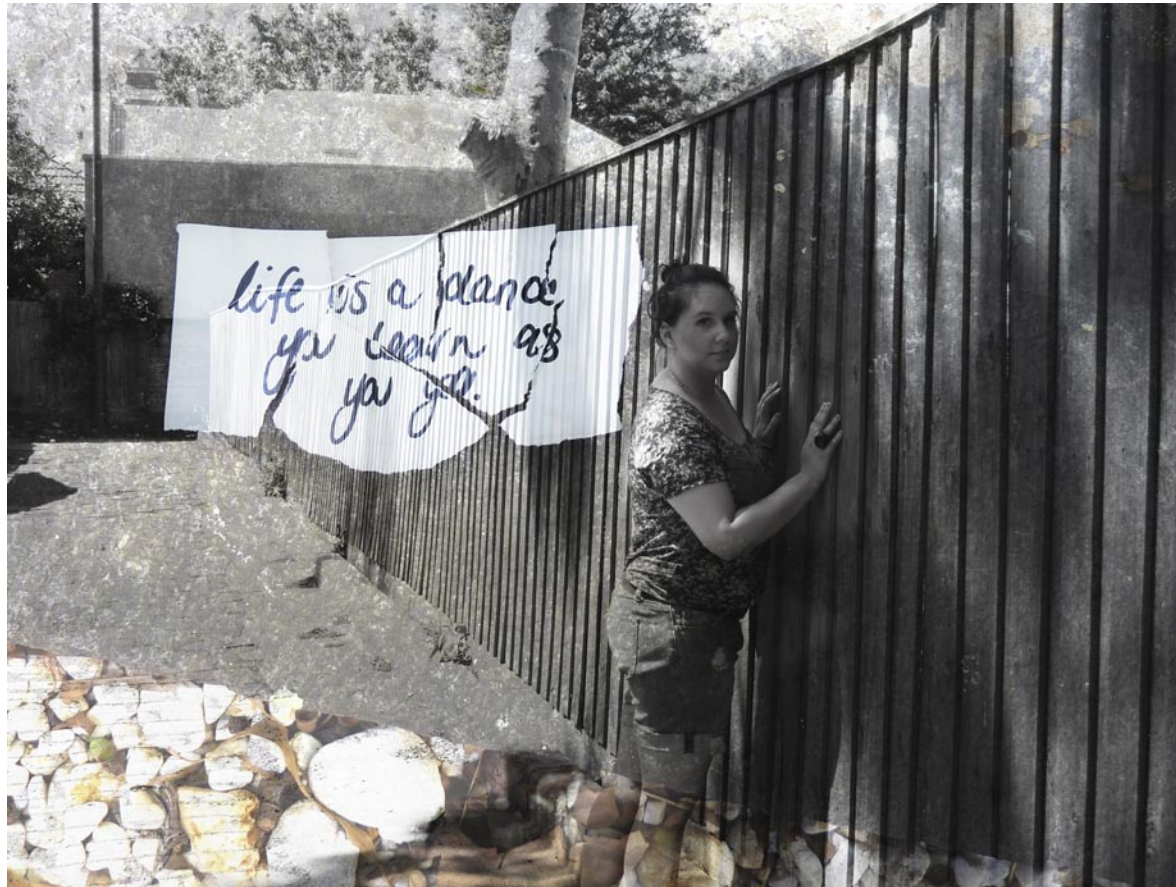 life is a dance,
you learn as
you go.